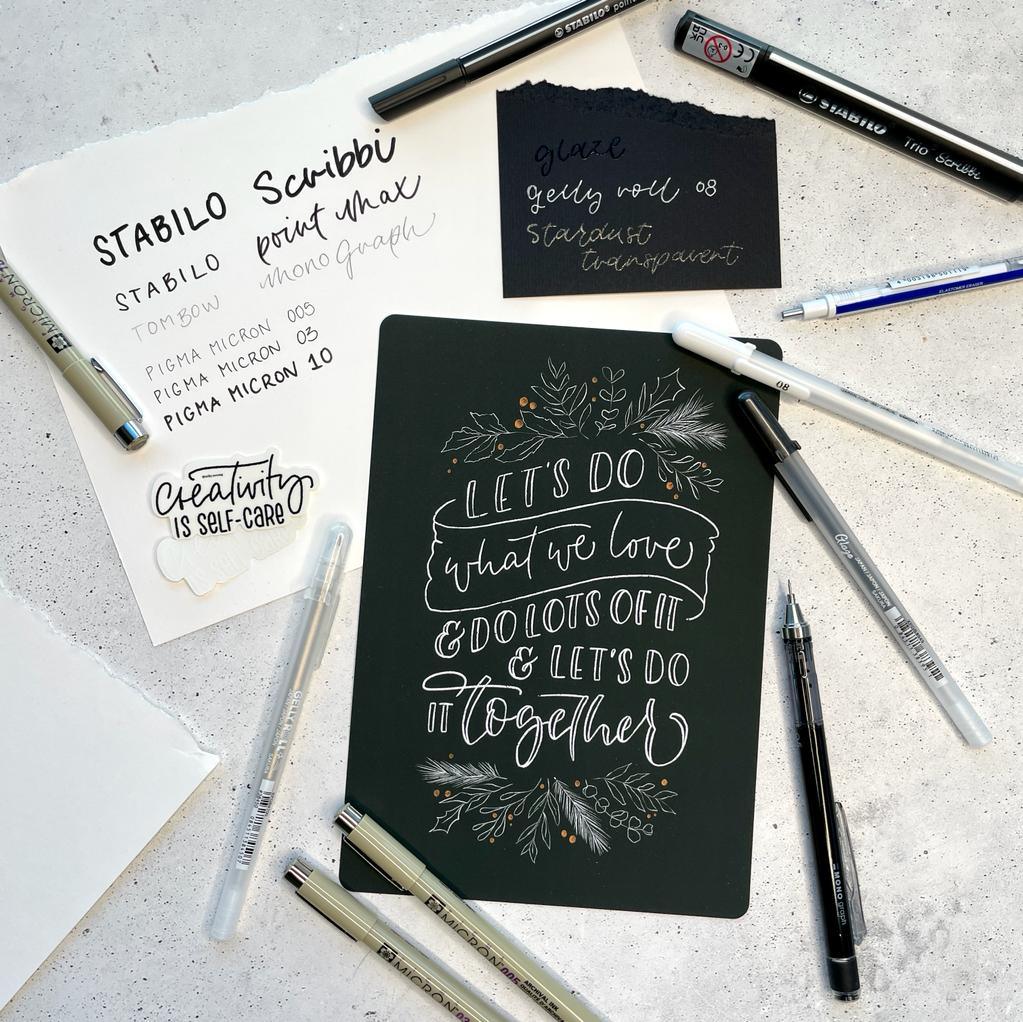 STABILO point
STABILO Trio Scribbi
STABILO Scribbi
STABILO point max
TOMBOW mono Graph
PIGMA MICRON 005
PIGMA MICRON 03
PIGMA MICRON 10
glaze
gelly roll 08
Stardust
transparent
MICRON
ELASTOMER ERASER
08
Creativity
IS SELF-CARE
LET'S DO
what we love
& DO LOTS OF IT
& LET'S DO
IT together
Glaze
JAPAN / JAPON / JAPÓN
SAKURA
GELLY ROLL
MONO graph
MICRON 005
ARCHIVAL INK
MICRON